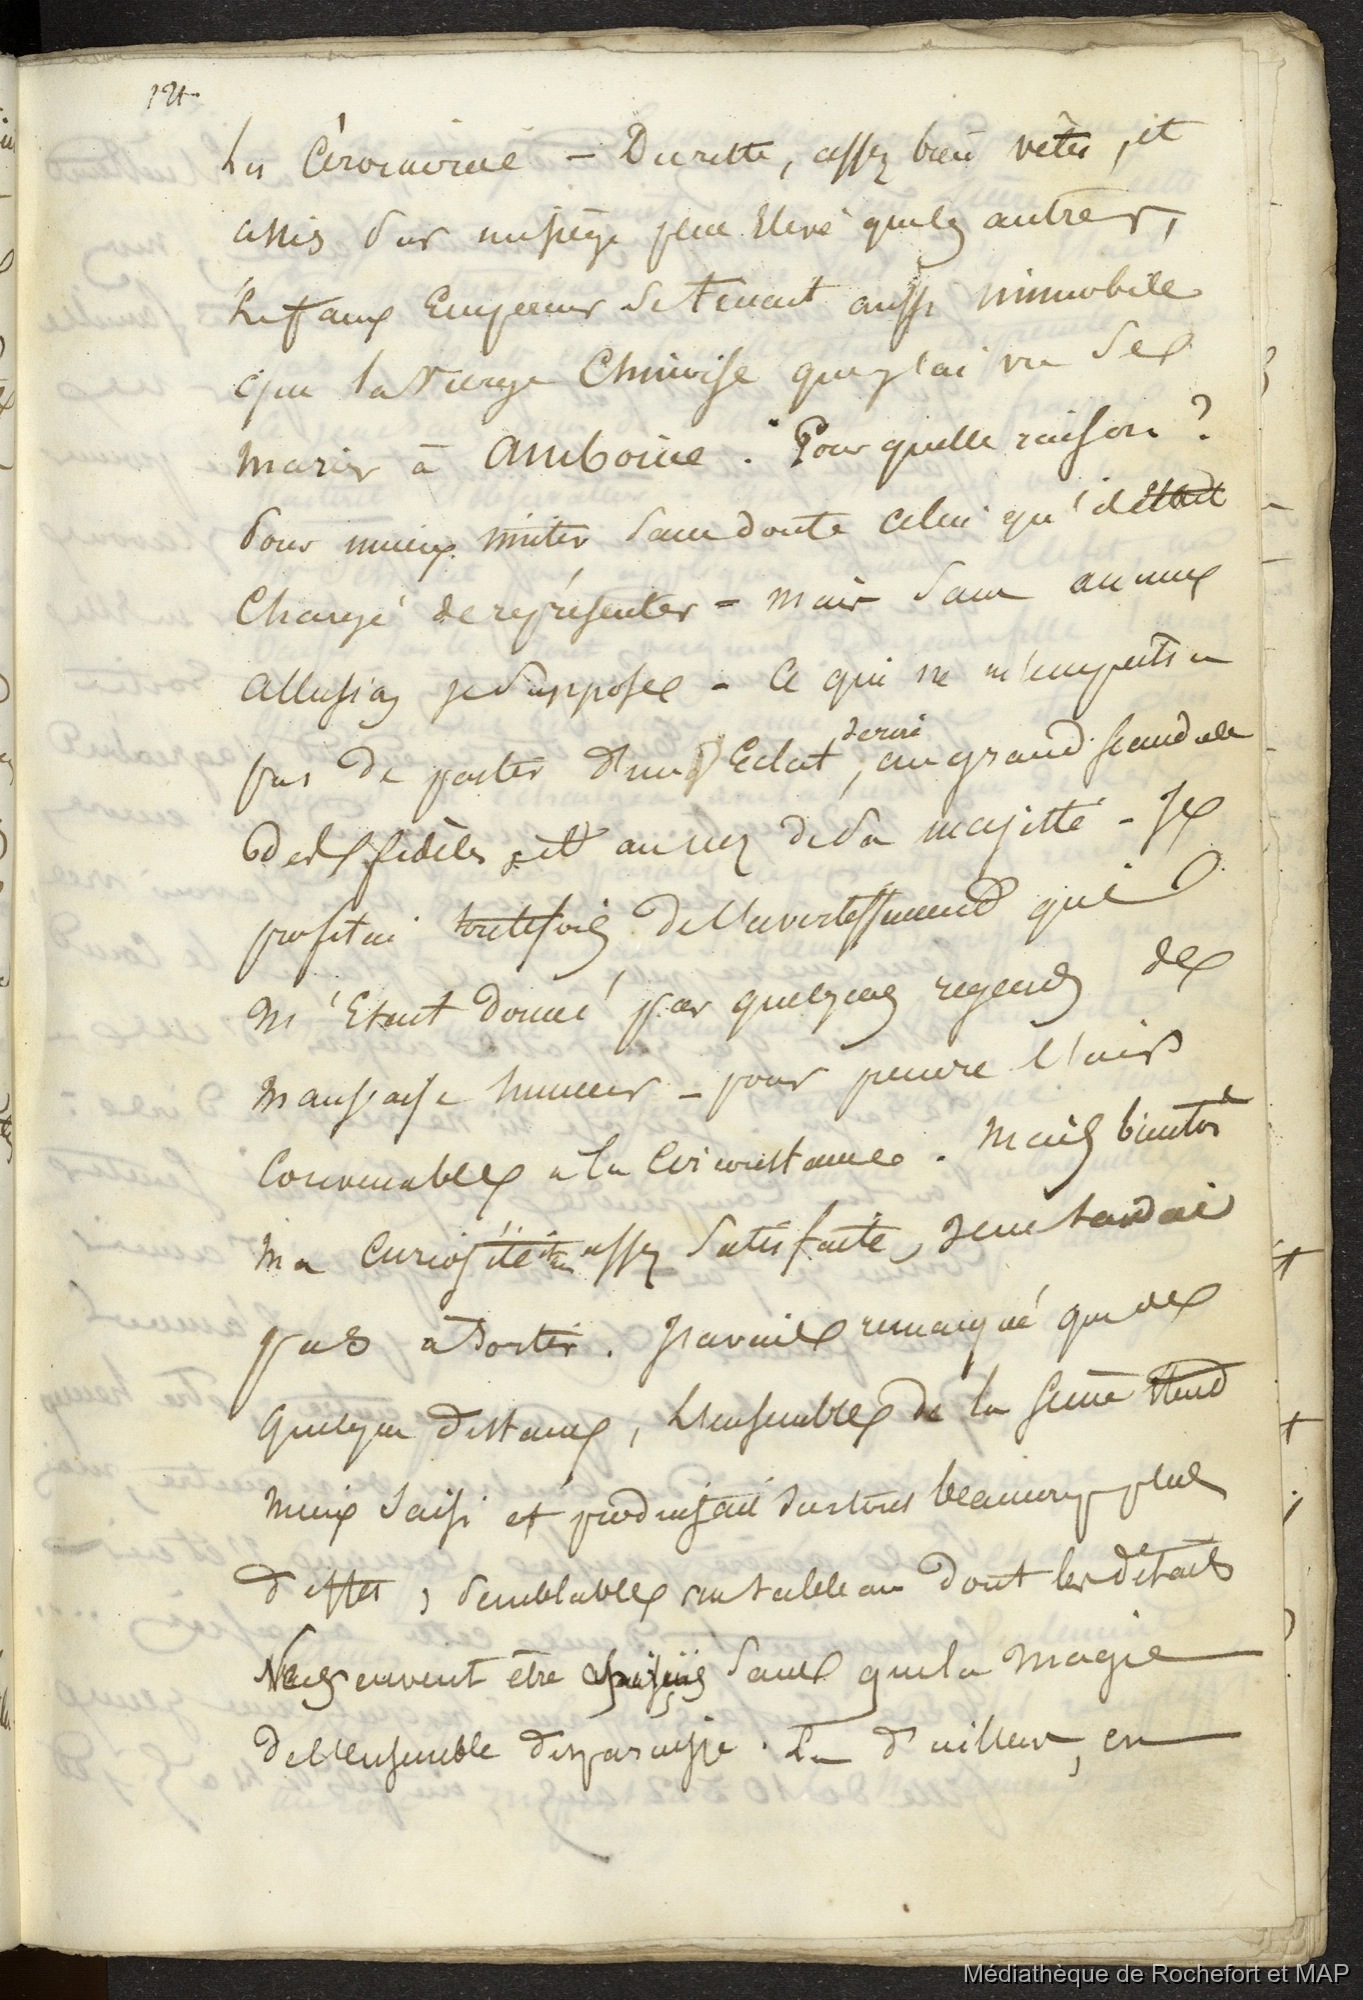 121.
la Cérémonie - Du reste, assez bien vêtu, et
assis sur un siège plus élevé que les autres,
le faux Empereur se tenait aussi immobile
que la vierge Chinoise que j'ai vu se
marier à Amboine. Pour quelle raison?
pour mieux imiter sans doute celui qu'il était
chargé de représenter - mais sans aucune
allusion je suppose - ce qui ne m'empêcha
pas de partir d'un Eclat de rire, au grand scandale
des fidèles et au nez de sa majesté - Je
profitai toutefois de l'avertissement qui
m'était donné par quelques regards de
mauvaise humeur - pour prendre l'air
convenable à la circonstance. Mais bientôt
ma curiosité étant assez satisfaite, je ne tardai
pas à sortir. J'avais remarqué que de
quelque distance, l'ensemble de la scène était
mieux saisi et produisait surtout beaucoup plus
d'effet, semblable à un tableau dont les détails
ne peuvent être saisis sans que la magie
de l'ensemble disparaisse. Là d'ailleurs, en
Médiathèque de Rochefort et MAP